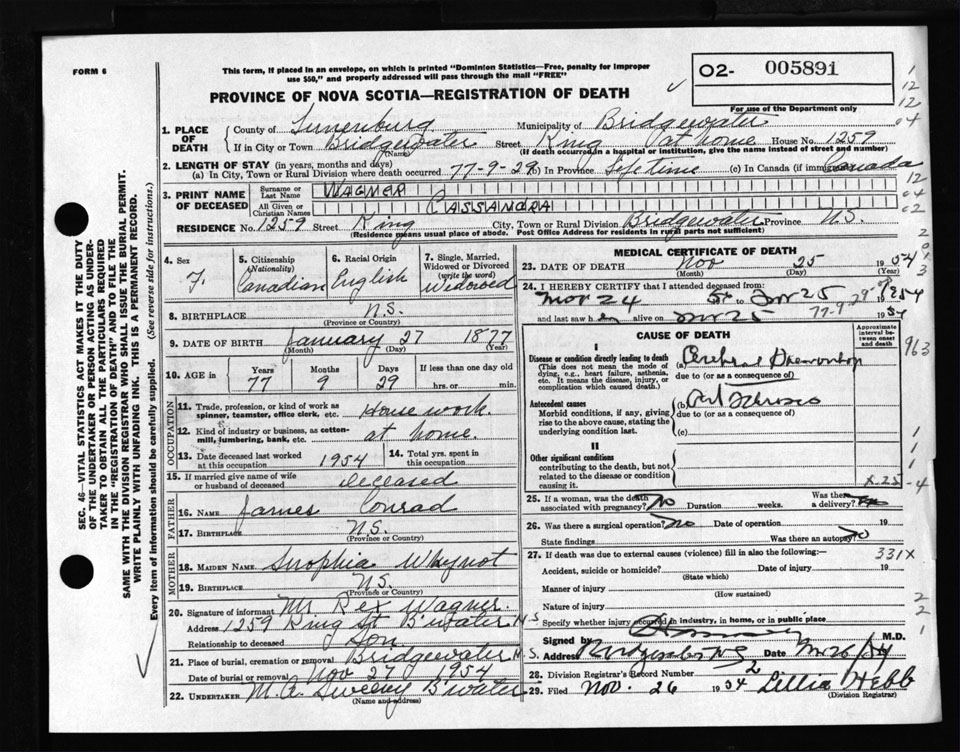 FORM 6
This form, if placed in an envelope, on which is printed "Dominion Statistics—Free, penalty for improper
use $50," and properly addressed will pass through the mail "FREE"
PROVINCE OF NOVA SCOTIA—REGISTRATION OF DEATH
02- 005891
For use of the Department only
1. PLACE OF DEATH
County of Lunenburg Municipality of Bridgewater
If in City or Town Bridgewater Street King (at home House No. 1259
(Name) (If death occurred in a hospital or institution, give the name instead of street and number)
2. LENGTH OF STAY (in years, months and days)
(a) In City, Town or Rural Division where death occurred 77-9-29 (b) In Province Life time (c) In Canada (if immigrant) Canada
3. PRINT NAME OF DECEASED
Surname or Last Name WAGNER
All Given or Christian Names CASSANDRA
RESIDENCE No. 1259 Street King City, Town or Rural Division Bridgewater Province N.S.
(Residence means usual place of abode. Post Office Address for residents in rural parts not sufficient)
4. Sex F.
5. Citizenship (Nationality) Canadian
6. Racial Origin English
7. Single, Married, Widowed or Divorced (write the word) Widowed
8. BIRTHPLACE N.S.
(Province or Country)
9. DATE OF BIRTH January 27 1877
(Month) (Day) (Year)
10. AGE in Years 77 Months 9 Days 29 If less than one day old
hrs. or min.
OCCUPATION
11. Trade, profession, or kind of work as spinner, teamster, office clerk, etc. House work.
12. Kind of industry or business, as cotton-mill, lumbering, bank, etc. at home.
13. Date deceased last worked at this occupation 1954
14. Total yrs. spent in this occupation
15. If married give name of wife or husband of deceased Deceased
FATHER
16. NAME James Conrad
17. BIRTHPLACE N.S.
(Province or Country)
MOTHER
18. MAIDEN NAME Whynot
19. BIRTHPLACE N.S.
Province or Country)
20. Signature of informant Mr Rex Wagner.
Address 1259 King St B'water N.S.
Relationship to deceased Son
21. Place of burial, cremation or removal Bridgewater N.S.
Date of burial or removal Nov 1954
22. UNDERTAKER M. A. Sweeny B'water
(Name and address)
MEDICAL CERTIFICATE OF DEATH
23. DATE OF DEATH Nov 25 1954
(Month) (Day) (Year)
24. I HEREBY CERTIFY that I attended deceased from:
Nov 24 54 to Nov 25 1954
77-9-29
and last saw h alive on Nov 25 1954
CAUSE OF DEATH
Approximate interval between onset and death
I
Disease or condition directly leading to death
(This does not mean the mode of dying, e.g., heart failure, asthenia, etc. It means the disease, injury, or complication which caused death.)
(a) Cerebral
due to (or as a consequence of)
Antecedent causes
Morbid conditions, if any, giving rise to the above cause, stating the underlying condition last.
(b)
due to (or as a consequence of)
(c)
II
Other significant conditions
contributing to the death, but not related to the disease or condition causing it.
25. If a woman, was the death associated with pregnancy? No Duration weeks. Was there a delivery?
26. Was there a surgical operation? No Date of operation 19
State findings Was there an autopsy? No
27. If death was due to external causes (violence) fill in also the following:— 331X
Accident, suicide or homicide? Date of injury 19
(State which)
Manner of injury
(How sustained)
Nature of injury
Specify whether injury occurred in industry, in home, or in public place
Signed by M.D.
Address Bridgewater NS Date Nov 26/54
28. Division Registrar's Record Number 2
29. Filed Nov. 26 1954 Lillia Hebb
(Division Registrar)
SEC. 46—VITAL STATISTICS ACT MAKES IT THE DUTY
OF THE UNDERTAKER OR PERSON ACTING AS UNDER-
TAKER TO OBTAIN ALL THE PARTICULARS REQUIRED
IN THE "REGISTRATION OF DEATH" AND TO FILE THE
SAME WITH THE DIVISION REGISTRAR WHO SHALL ISSUE THE BURIAL PERMIT.
WRITE PLAINLY WITH UNFADING INK. THIS IS A PERMANENT RECORD.
Every item of information should be carefully supplied. (See reverse side for instructions.)
1
12
12
04
12
04
02
2
0
1
3
963
1
1
1
1
-4
2
2
1